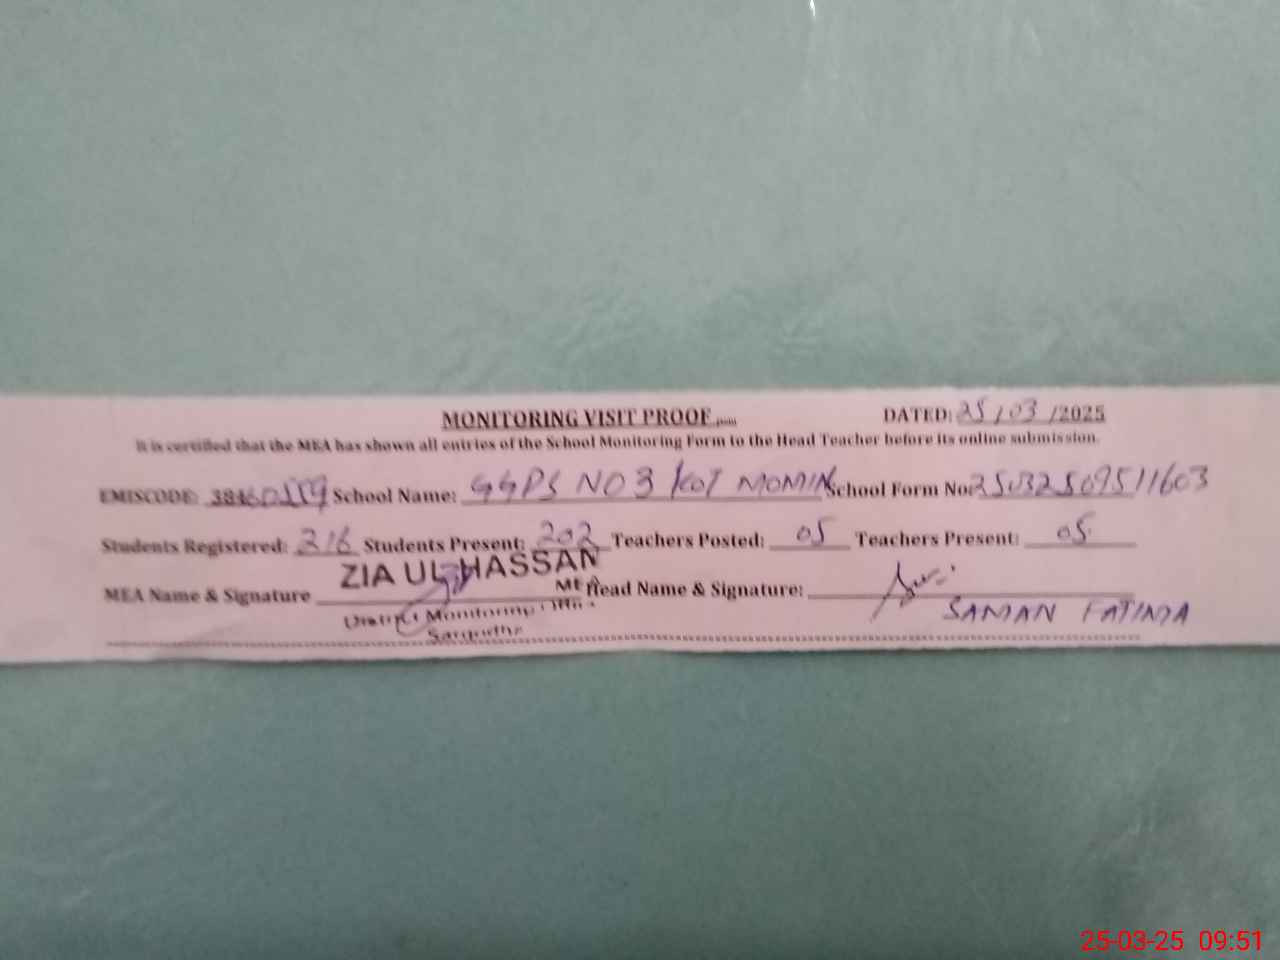 MONITORING VISIT PROOF DATED: 25/03/2025
It is certified that the MEA has shown all entries of the School Monitoring Form to the Head Teacher before its online submission.
EMISCODE: 38460559 School Name: GGPS NO 3 KOT MOMIN School Form No: 25032509511603
Students Registered: 216 Students Present: 202 Teachers Posted: 05 Teachers Present: 05
MEA Name & Signature ZIA UL HASSAN MEA Head Name & Signature:
District Monitoring Office SAMAN FATIMA
Sargodha
25-03-25 09:51